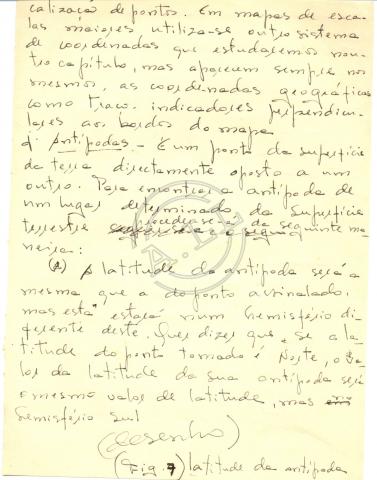 calização de pontos. Em mapas de esca-
las maiores utiliza-se outro sistema
de coordenadas que estudaremos nou-
tro capítulo, mas aparecem sempre nos
mesmos, as coordenadas geográficas
como traços indicadores perpendicu-
lares aos bordos do mapa
d) Antípodas. - É um ponto da superfície
da terra directamente oposto a um
outro. Para encontrar a antípoda de
um lugar determinado da superfície
procederse-á da seguinte ma-
terrestre
neira:
(a) A latitude da antípoda será a
mesma que a do ponto assinalado,
mas esta estará num hemisfério di-
ferente deste. Quer dizer que, se a la-
titude do ponto tomado é Norte, o va-
lor da latitude da sua antípoda será
o mesmo valor de latitude, mas no
hemisfério Sul
(desenho)
(Fig. 7) latitude da antípoda